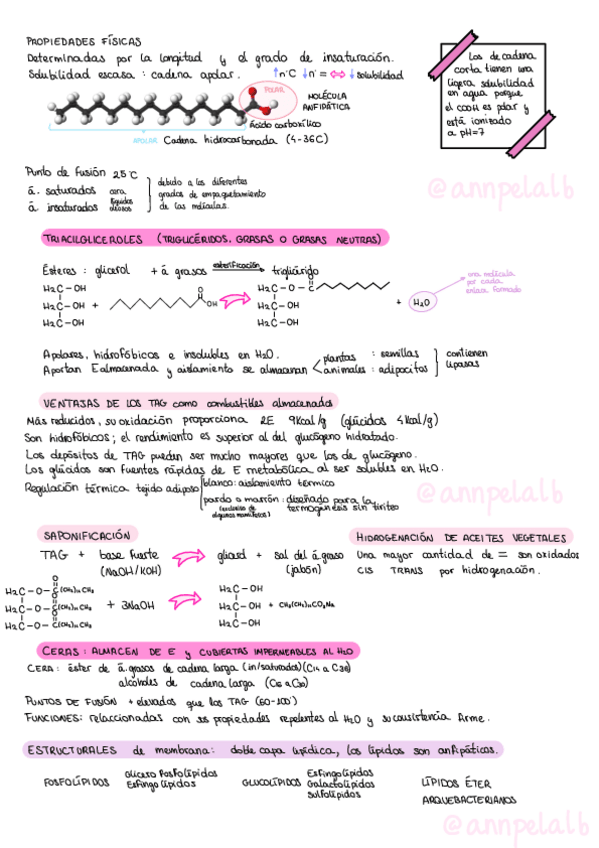 PROPIEDADES FÍSICAS
Determinadas por la longitud y el grado de insaturación.
Solubilidad escasa: cadena apolar. ↑nºC ↓n°= ⇔ ↓solubilidad
Los de cadena
corta tienen una
ligera solubilidad
en agua porque
el COOH es polar y
está ionizado
a pH=7
POLAR
MOLÉCULA
ANFIPÁTICA
Ácido carboxílico
APOLAR Cadena hidrocarbonada (4-36C)
Punto de fusión 25°C
á. saturados cera
á insaturados líquidos oleosos
debido a los diferentes
grados de empaquetamiento
de las moléculas.
@annpelalb
TRIACILGLICEROLES (TRIGLICÉRIDOS, GRASAS O GRASAS NEUTRAS)
Ésteres: glicerol + á grasos esterificación triglicérido
una molécula
por cada
enlace formado
H2C-OH
H2C-OH + O OH
H2C-OH
H2C-O-C O
H2C-OH + H2O
H2C-OH
Apolares, hidrofóbicos e insolubles en H2O.
Aportan E almacenada y aislamiento se almacenan plantas: semillas
animales: adipocitos
contienen
lipasas
VENTAJAS DE LOS TAG como combustibles almacenados
Más reducidos, su oxidación proporciona 2E 9Kcal/g (glúcidos 4Kcal/g)
Son hidrofóbicos; el rendimiento es superior al del glucógeno hidratado.
Los depósitos de TAG pueden ser mucho mayores que los de glucógeno.
Los glúcidos son fuentes rápidas de E metabólica al ser solubles en H2O.
Regulación térmica tejido adiposo blanco: aislamiento térmico
pardo o marrón: diseñado para la
(exclusivo de algunos mamíferos) termogénesis sin tiriteo
@annpelalb
SAPONIFICACIÓN
TAG + base fuerte glicerol + sal del á graso
(NaOH/KOH) (jabón)
HIDROGENACIÓN DE ACEITES VEGETALES
Una mayor cantidad de = son oxidados
CIS TRANS por hidrogenación.
H2C-O-C
H2C-O-C + 3NaOH
H2C-O-C
H2C-OH
H2C-OH +
H2C-OH
CERAS: ALMACEN DE E y CUBIERTAS IMPERMEABLES AL H2O
CERA: éster de á.grasos de cadena larga (in/saturados)(C14 a C36)
alcoholes de cadena larga (C16 a C30)
PUNTOS DE FUSIÓN + elevados que los TAG (60-100°)
FUNCIONES: relaccionadas con sus propiedades repelentes al H2O y su consistencia firme.
ESTRUCTURALES de membrana: doble capa lipídica, los lípidos son anfipáticos.
FOSFOLÍPIDOS Glicerofosfolípidos
Esfingolípidos
GLUCOLÍPIDOS Esfingolípidos
Galactolípidos
Sulfolípidos
LÍPIDOS ÉTER
ARQUEBACTERIANOS
@annpelalb